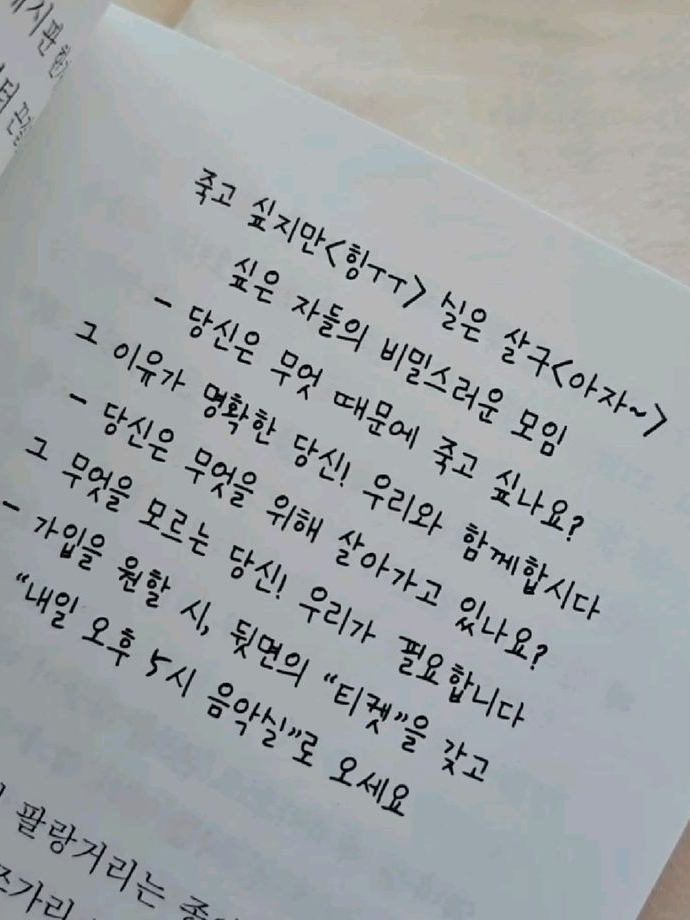 죽고 싶지만<힝ㅜㅜ> 실은 살구<아자~>
싶은 자들의 비밀스러운 모임
- 당신은 무엇 때문에 죽고 싶나요?
그 이유가 명확한 당신! 우리와 함께합시다
- 당신은 무엇을 위해 살아가고 있나요?
그 무엇을 모르는 당신! 우리가 필요합니다
- 가입을 원할 시, 뒷면의 “티켓”을 갖고
“내일 오후 5시 음악실”로 오세요
팔랑거리는